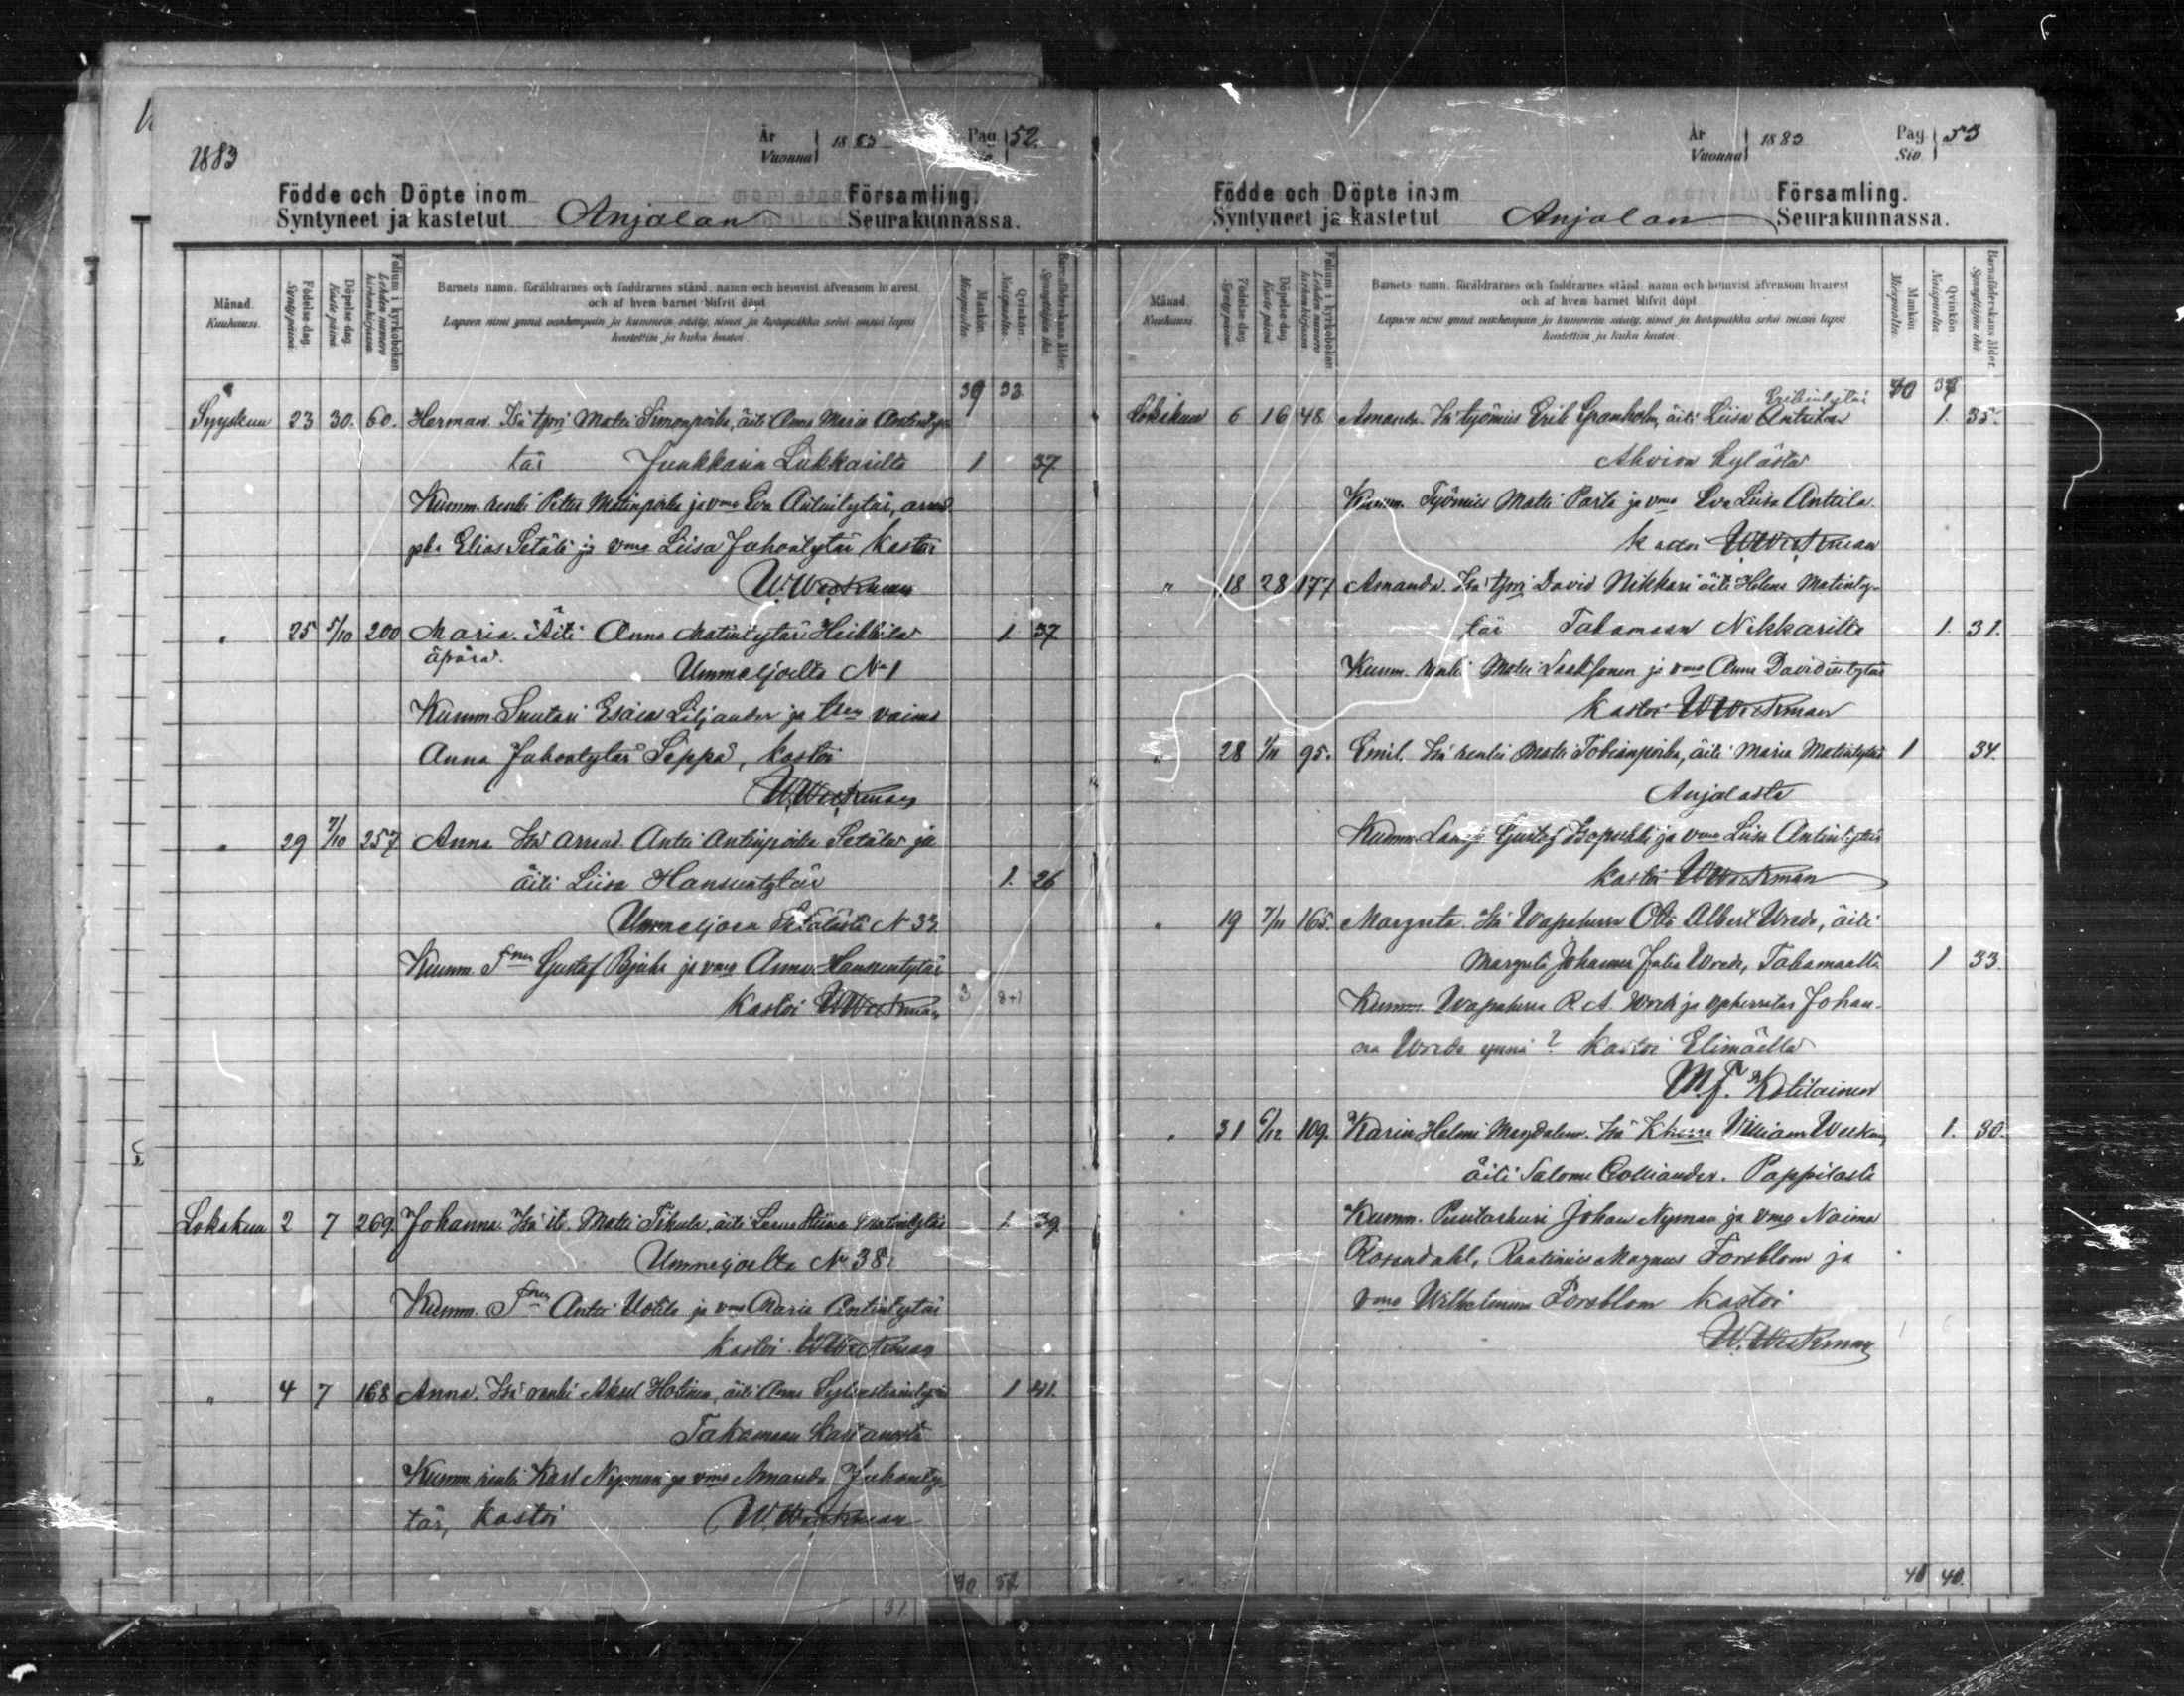 1883
År
Vuonna 1883
Pag.
Siv. 52.
Födde och Döpte inom Församling.
Syntyneet ja kastetut Anjalan Seurakunnassa.
Månad.
Kuukausi.
Födelse dag.
Synty päivä.
Döpelse dag.
Kaste päivä.
Folium i kyrkoboken
Lehden numero kirkonkirjassa.
Barnets namn, föräldrarnes och faddrarnes stånd, namn och hemvist äfvensom hvarest
och af hvem barnet blifvit döpt.
Lapsen nimi ynnä vanhempain ja kummein sääty, nimet ja kotopaikka sekä missä lapsi
kastettiin ja kuka kastoi.
Mankön.
Miespuolta.
Qvinkön.
Naispuolta.
Barnaföderskans ålder.
Synnyttäjän ikä.
39 33
Syyskuu 23 30. 60. Herman. Isä tpri Matti Simonpoika, äiti Anna Maria Antinty-
tär Junkkarin Lukkarilta 1 37
Kumm. renki Petter Matinpoika ja vmo Eva Antintytär, arend
Elias Setälä ja vmo Liisa Juhontytär kastoi
W. Weckman
" 25 5/10 200 Maria. Äiti Anna Matintytär Heikkilä 1 37
äpärä.
Ummeljoelta No 1
Kumm. Suutari Esaias Liljander ja vaimo
Anna Juhontytär Seppä, kastoi
W. Weckman
" 29 7/10 257 Anna Isä arend. Antti Antinpoika Setälä ja
äiti Liisa Hansuntytär 1. 26
Ummeljoen Setälästä N 33
Kumm. Gustaf ja vmo Anna Hansuntytär
Kastoi W Weckman 3 8+1
Lokakuu 2 7 269. Johanna. Isä it. Matti Tikula, äiti Leena Stiina Matintytär 1. 39.
Ummeljoelta No 38.
Kumm. Antti Uotila ja vmo Maria Antintytär
kastoi W Weckman
" 4 7 168 Anna. Isä renki Aksel äiti Anna 1 41.
Takamaan
Kumm. renki Karl Nyman ja vmo Amanda Juhonty-
tär, kastoi W. Weckman
40
År
Vuonna 1883
Pag.
Siv. 53
Födde och Döpte inom Församling.
Syntyneet ja kastetut Anjalan Seurakunnassa.
Månad.
Kuukausi.
Födelse dag.
Synty päivä.
Döpelse dag.
Kaste päivä.
Folium i kyrkoboken
Lehden numero kirkonkirjassa.
Barnets namn, föräldrarnes och faddrarnes stånd, namn och hemvist äfvensom hvarest
och af hvem barnet blifvit döpt.
Lapsen nimi ynnä vanhempain ja kummein sääty, nimet ja kotopaikka sekä missä lapsi
kastettiin ja kuka kastoi.
Mankön.
Miespuolta.
Qvinkön.
Naispuolta.
Barnaföderskans ålder.
Synnyttäjän ikä.
40
Erikintytär
Lokakuu 6 16 48. Amanda. Isä työmies Erik Granholm, äiti Liisa 1. 35.
Ahvion kylästä
Kumm. Työmies Matti ja vmo Eva Liisa Anttila.
kastoi W Weckman
" 18 28 177 Amanda. Isä tpri David Nikkari äiti Helena Matinty-
tär Takamaan Nikkarilta 1. 31.
Kumm. renki Matti Laaksonen ja vmo Anna Davidintytär
kastoi W Weckman
" 28 1/11 95. Emil. Isä renki Matti Tobianpoika, äiti Maria Matintytär 1 34.
Anjalasta
Kumm. Gustaf ja vmo Liisa Antintytär
kastoi W Weckman
" 19 7/11 165. Margreta. Isä Wapaherra Otto Albert Wrede, äiti
Margreta Johanna Julia Wrede, Takamaalta 1 33.
Kumm. Wapaherra R. A. Wrede ja Johan-
na Wrede ynnä ? kastoi Elimäellä
Kotilainen
" 31 6/12 109. Karin Helmi Magdalena. Isä Kherra William Weckman, 1. 30.
äiti Salome Colliander. Pappilasta
Kumm. Puutarhuri Johan Nyman ja vmo Naima
Rosendahl, Magnus Forsblom ja
vmo Wilhelmina Forsblom kastoi
W. Weckman
41 40.